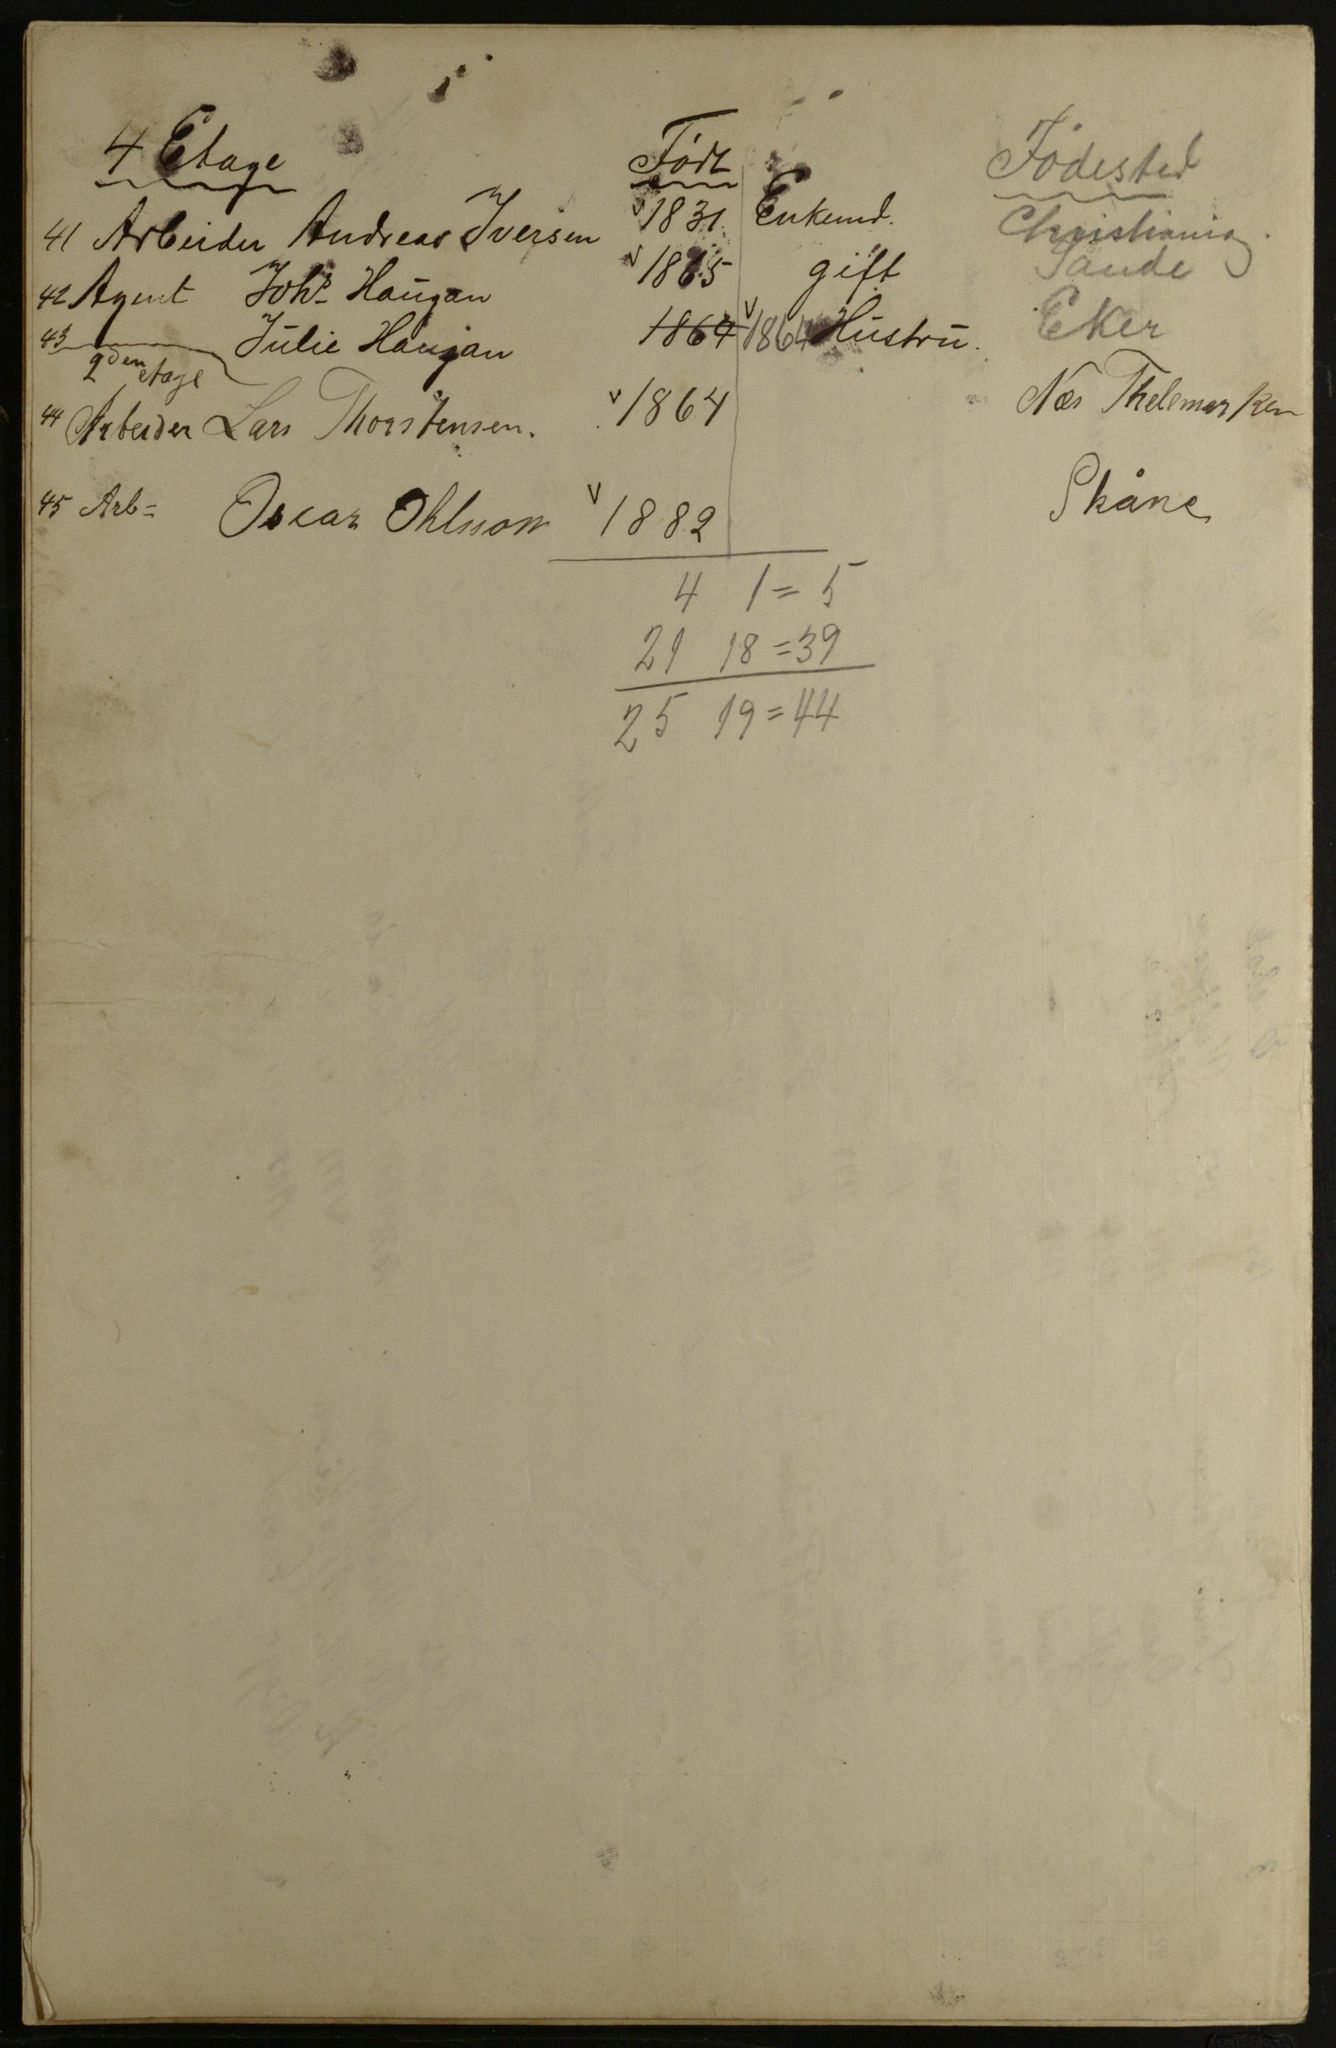 4 Etage Født Fødested
41 Arbeider Andreas Iversen v 1831 Enkemd. Christiania.
42 Agent Johs Haugan v 1865 gift Sande
43 Julie Haugan 1864 v 1864 Hustru. Eker
2den etage
44 Arbeider Lars Thorstensen. v 1864 Næs Thelemarken
45 Arb= Oscar Ohlsson v 1882 Skåne
4 1 = 5
21 18 = 39
25 19 = 44